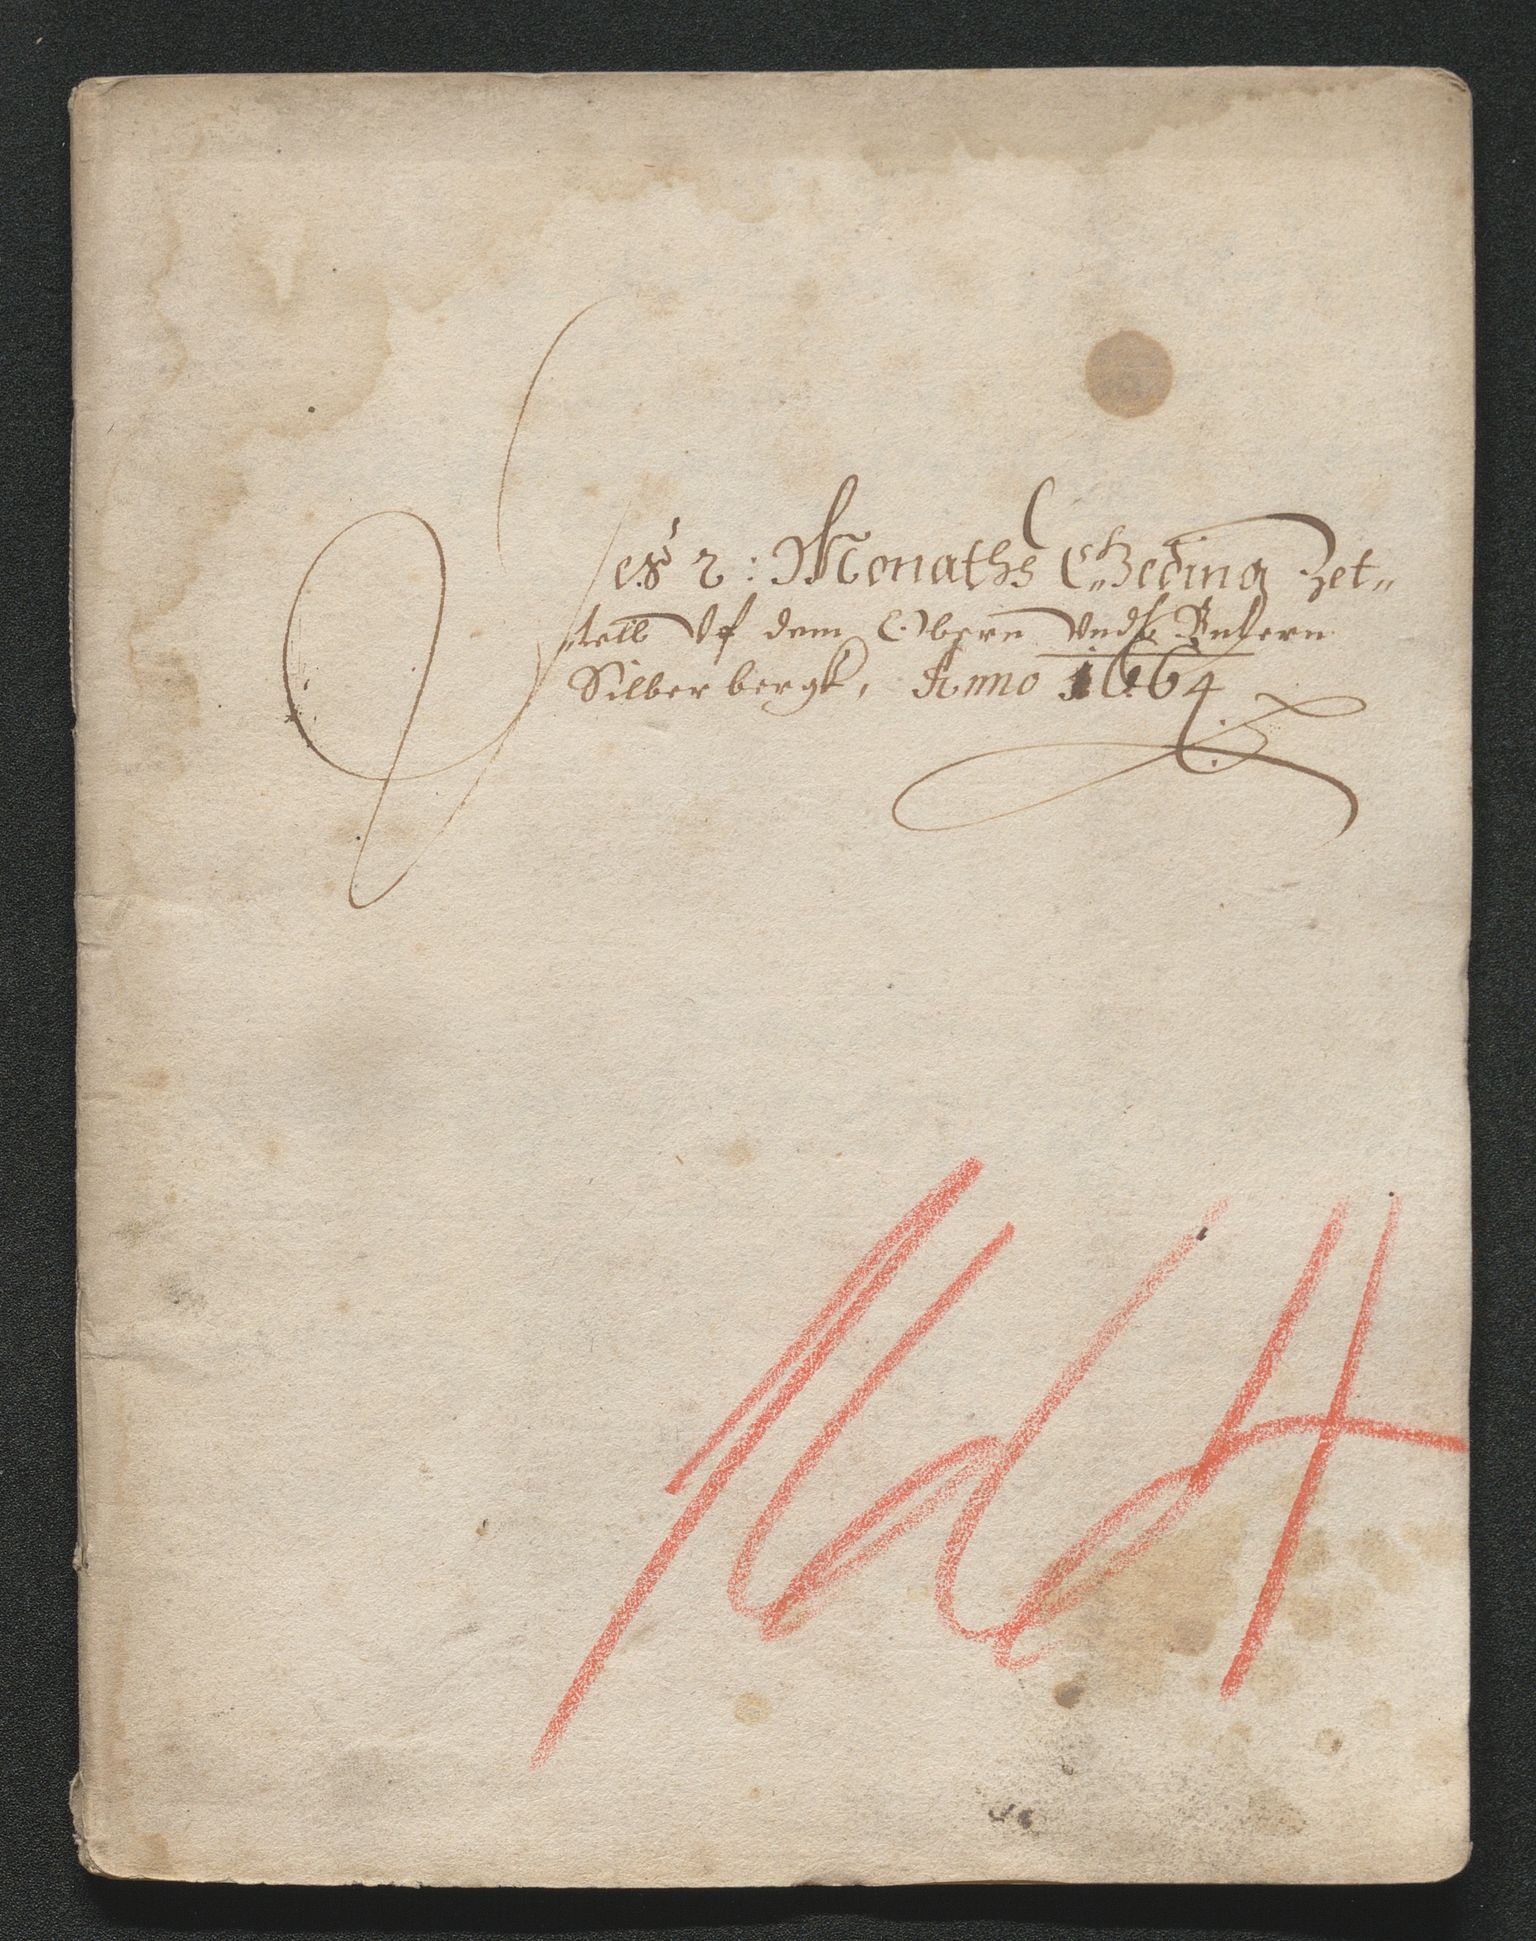 Des 2: Monaths Geding Zet„
tell Vf dem Obern Vndt Vntern
Silberbergk, Anno 1664
1664